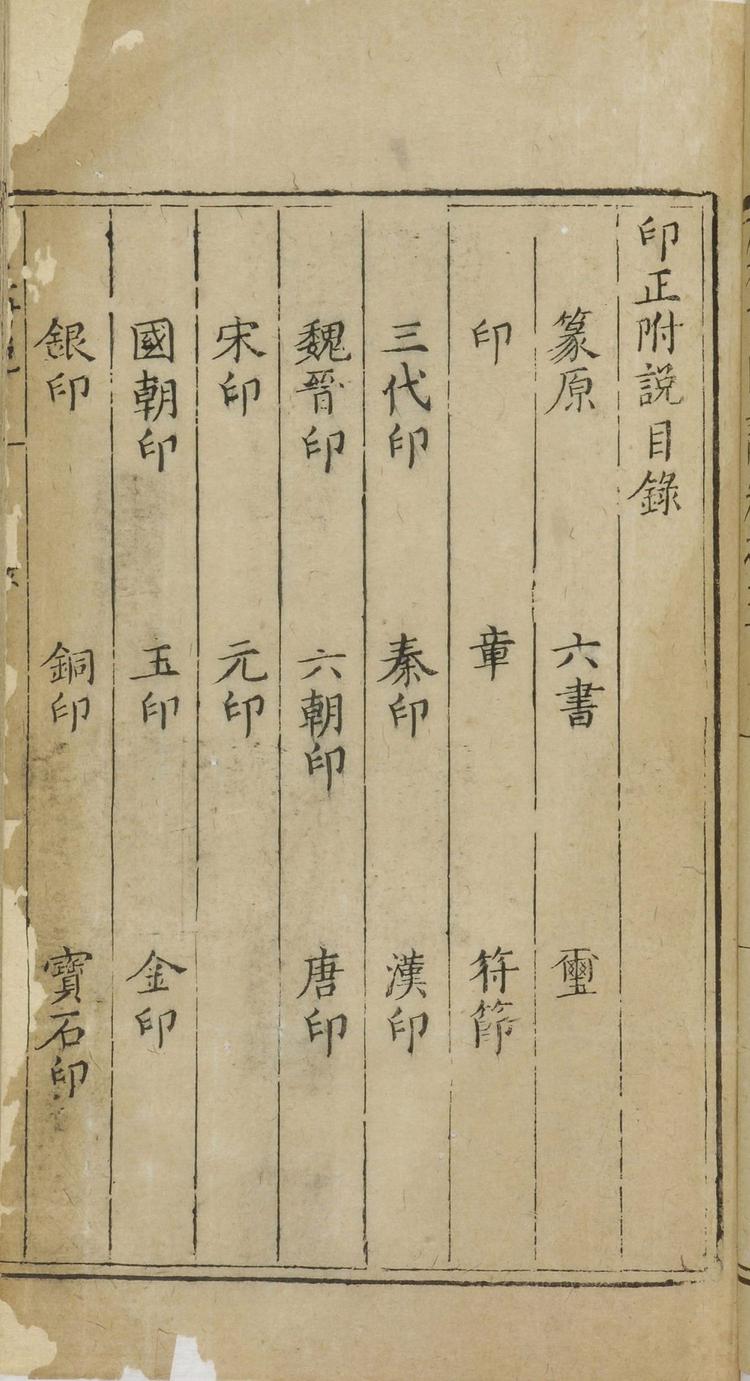 印正附說目錄
篆原 六書 璽
印 章 符節
三代印 秦印 漢印
魏晉印 六朝印 唐印
宋印 元印
國朝印 玉印 金印
銀印 銅印 寶石印